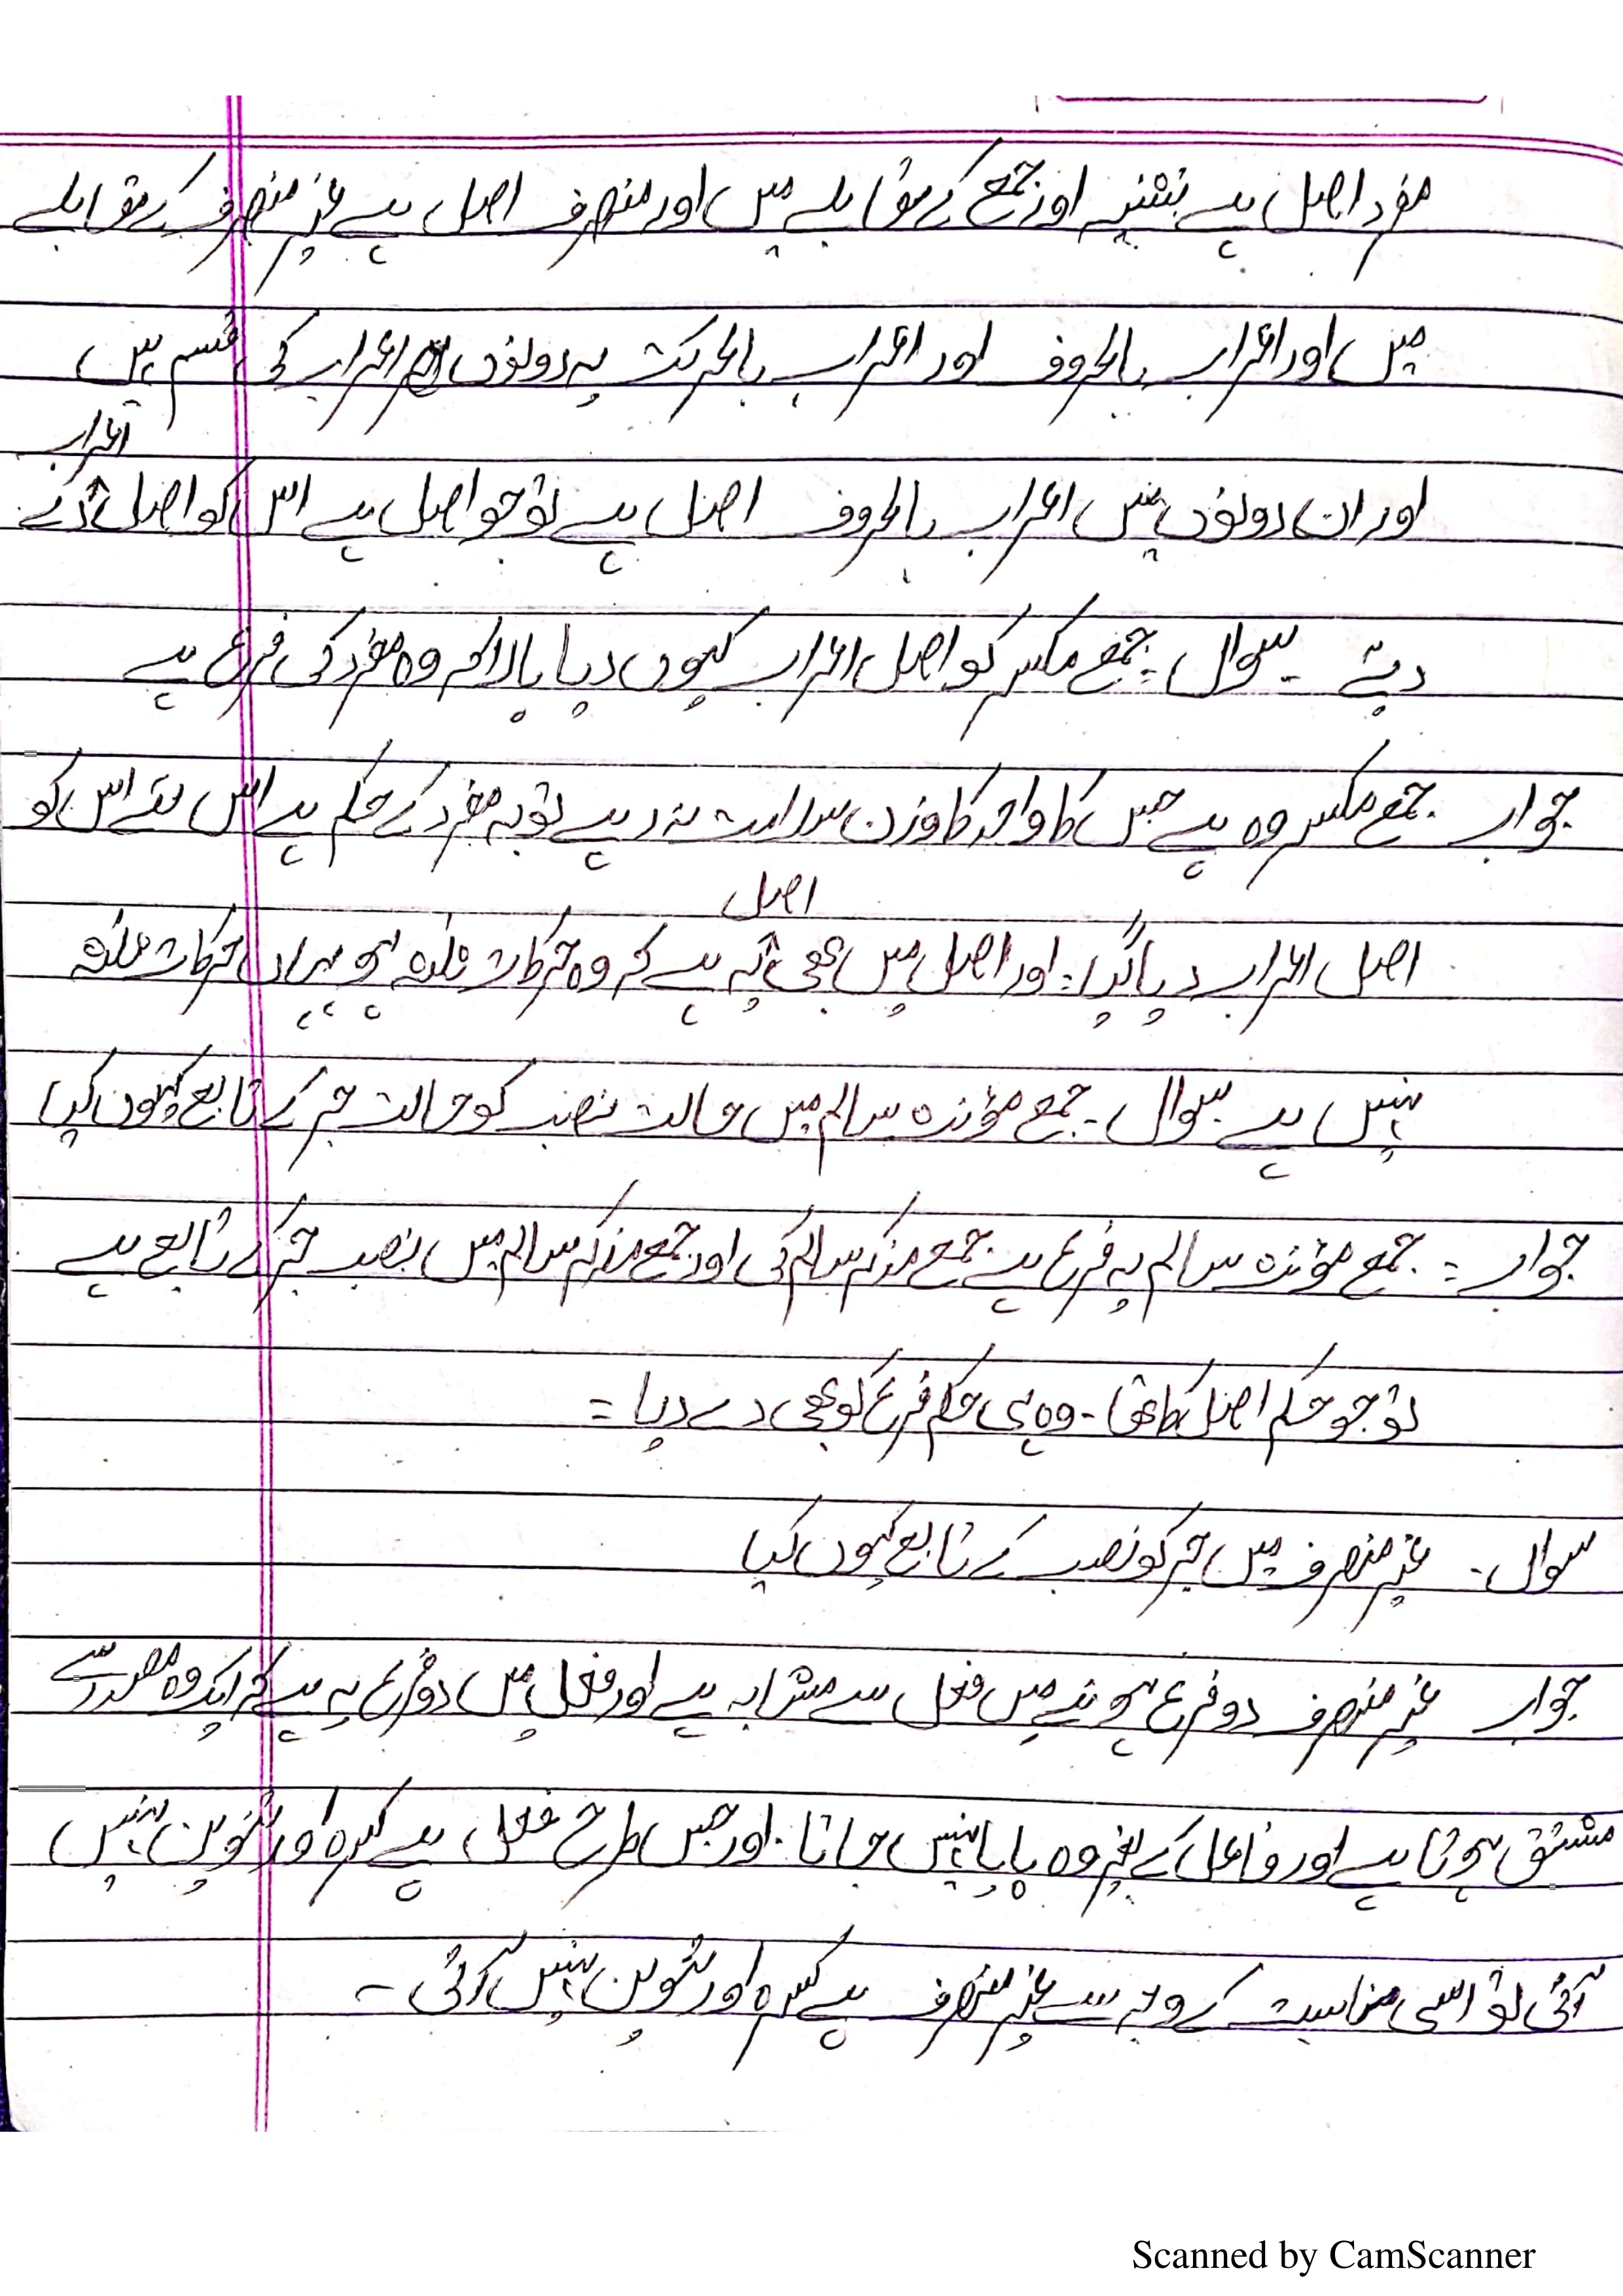 مفرد اصل ہے تثنیہ اور جمع کے مقابلے میں اور منصرف اصل ہے غیر منصرف کے مقابلے
میں اور اعراب بالحروف اور اعراب بالحرکت یہ دونوں اعراب کی قسم ہیں
اعراب
اور ان دونوں میں اعراب بالحروف اصل ہے تو جو اصل ہے اس کو اصل
دیتے ۔ سوال ۔ جمع مکسر کو اصل اعراب کیوں دیا وہ مفرد کی فرع ہے
جواب جمع مکسر وہ ہے جس کا واحد کا وزن سلامت نہ رہے تو یہ مفرد کے حکم ہے اس لئے اس کو
اصل
اصل اعراب دیا گیا ۔ اور اصل میں بھی یہ ہے کہ وہ حرکات ثلاثہ ہو یہاں حرکات ثلاثہ
نہیں ہے سوال ۔ جمع مؤنث سالم میں حالت نصب کو حالت جر کے تابع کیوں کیا
جواب = جمع مؤنث سالم یہ فرع ہے جمع مذکر سالم کی اور جمع مذکر سالم میں نصب جر کے تابع ہے
تو جو حکم اصل کا تھا ۔ وہ ہی حکم فرع کو بھی دے دیا =
سوال ۔ غیر منصرف میں جر کو نصب کے تابع کیوں کیا
جواب غیر منصرف دو فرع ہونے میں فعل سے مشابہ ہے اور فعل میں دو فرع یہ ہے کہ ایک وہ مصدر سے
مشتق ہوتا ہے اور فاعل کے بغیر وہ پایا نہیں جاتا ۔ اور جس طرح فعل پے کسرہ اور تنوین نہیں
آتی تو اسی مناسبت کے وجہ سے غیر منصرف پے کسرہ اور تنوین نہیں آتی ۔
Scanned by CamScanner